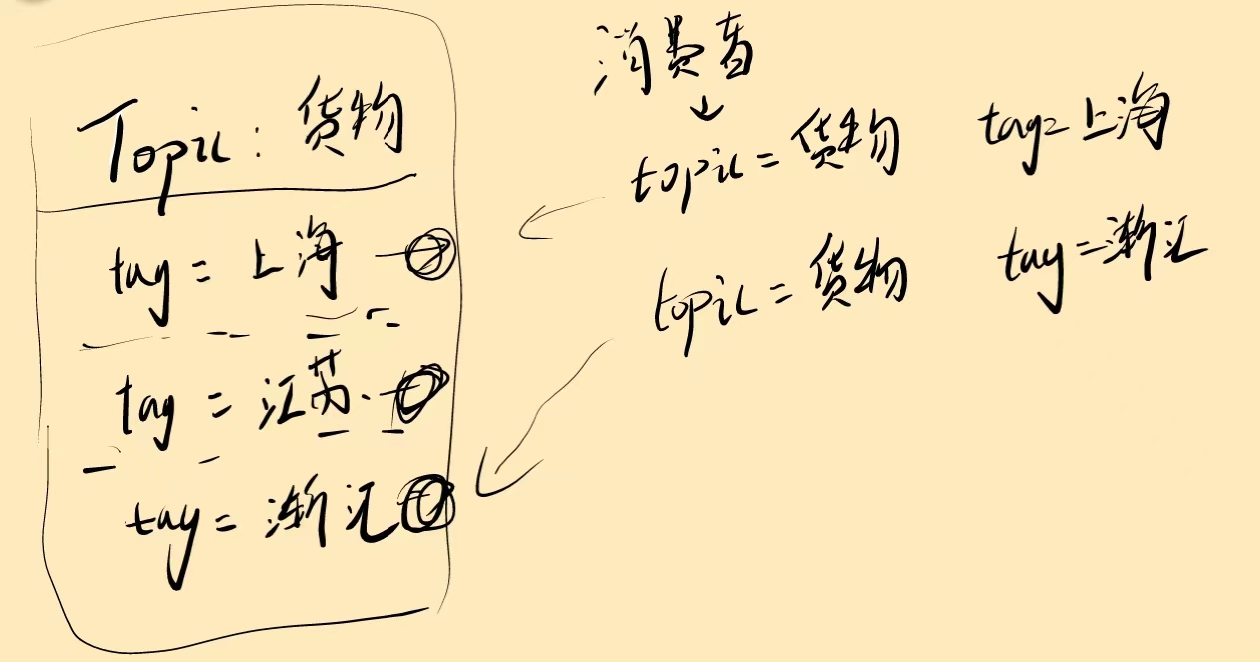 Topic: 货物
tag = 上海
tag = 江苏
tag = 浙江
消费者
topic = 货物 tag= 上海
topic = 货物 tag = 浙江